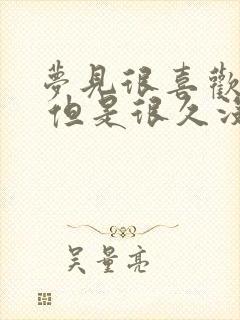 夢見很喜歡
但是很久沒
吳量亮